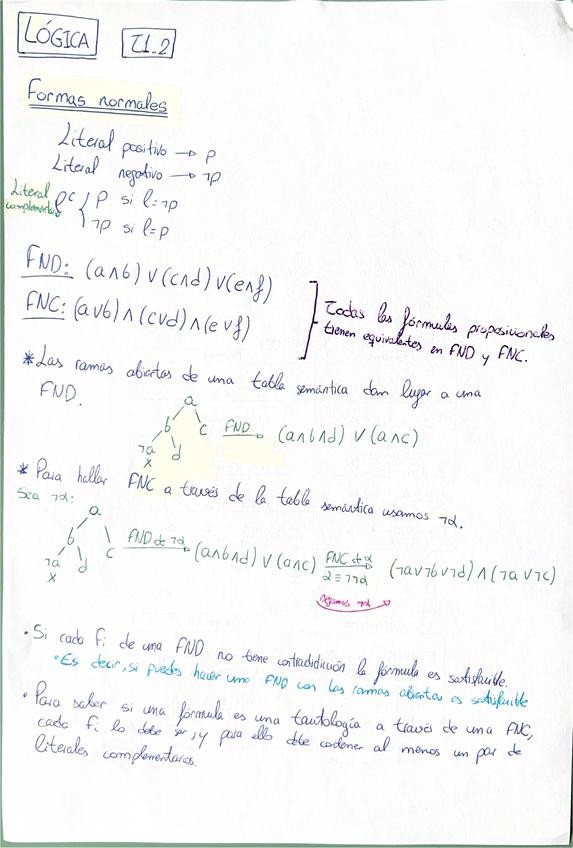 LÓGICA T1.2
Formas normales
Literal positivo → p
Literal negativo → ¬p
Literal complementario lᶜ { p si l=¬p
¬p si l=p
FND: (a∧b) ∨ (c∧d) ∨ (e∧f)
FNC: (a∨b) ∧ (c∨d) ∧ (e∨f)
Todas las fórmulas proposicionales
tienen equivalentes en FND y FNC.
* Las ramas abiertas de una tabla semántica dan lugar a una
FND.
a
b c FND → (a∧b∧d) ∨ (a∧c)
¬a d
x
* Para hallar FNC a través de la tabla semántica usamos ¬α.
Sea ¬α:
a
b c FND de ¬α → (a∧b∧d) ∨ (a∧c) FNC de α → (¬a∨¬b∨¬d) ∧ (¬a∨¬c)
α ≡ ¬¬α
¬a d
x
negamos ¬α
· Si cada Fi de una FND no tiene contradidición la fórmula es satisfacible.
· Es decir, si puedes hacer una FND con las ramas abiertas es satisfacible
· Para saber si una fórmula es una tautología a través de una FNC,
cada Fi lo debe ser, y para ello debe contener al menos un par de
literales complementarios.